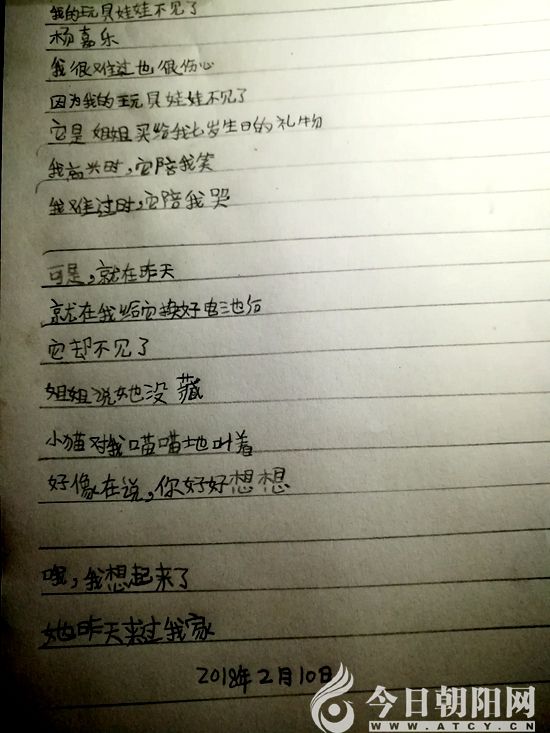 我的玩具娃娃不见了
杨嘉乐
我很难过也很伤心
因为我的玩具娃娃不见了
它是姐姐买给我七岁生日的礼物
我高兴时,它陪我笑
我难过时,它陪我哭
可是,就在昨天
就在我给它换好电池后
它却不见了
姐姐说她没藏
小猫对我喵喵地叫着
好像在说,你好好想想
哦,我想起来了
她昨天来过我家
2018年2月10日
今日朝阳网
WWW.ATCY.CN